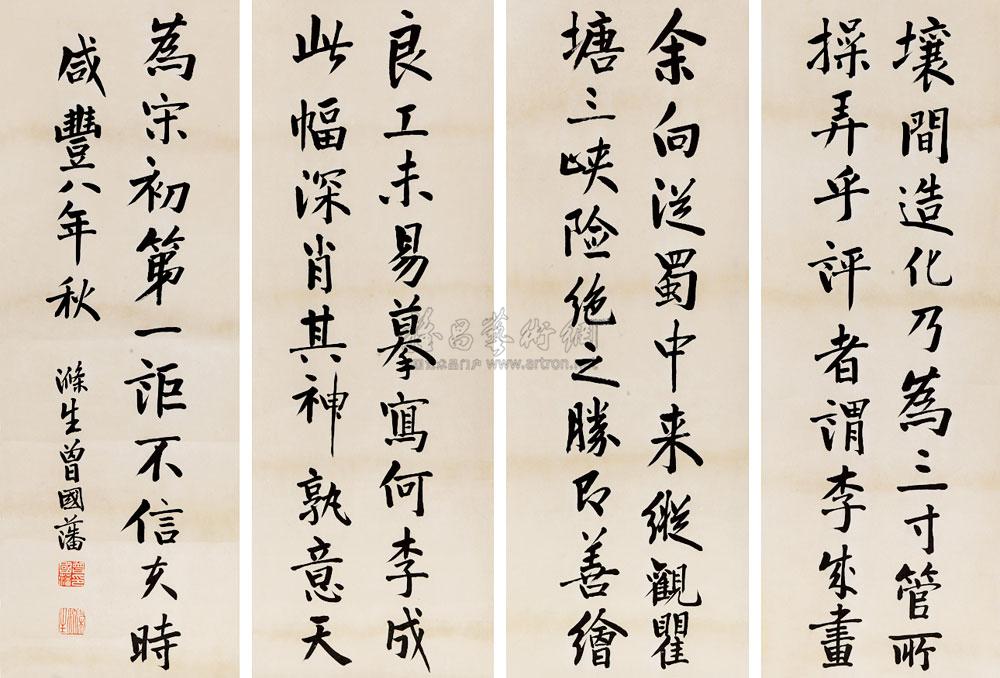 壤間造化乃為三寸管所
操弄乎評者謂李成畫
余向從蜀中来縱觀瞿
塘三峡险绝之勝即善繪
良工未易摹寫何李成
此幅深肖其神孰意天
為宋初第一詎不信夫時
咸豐八年秋 滌生曾國藩
雅昌藝術網
www.artron.net